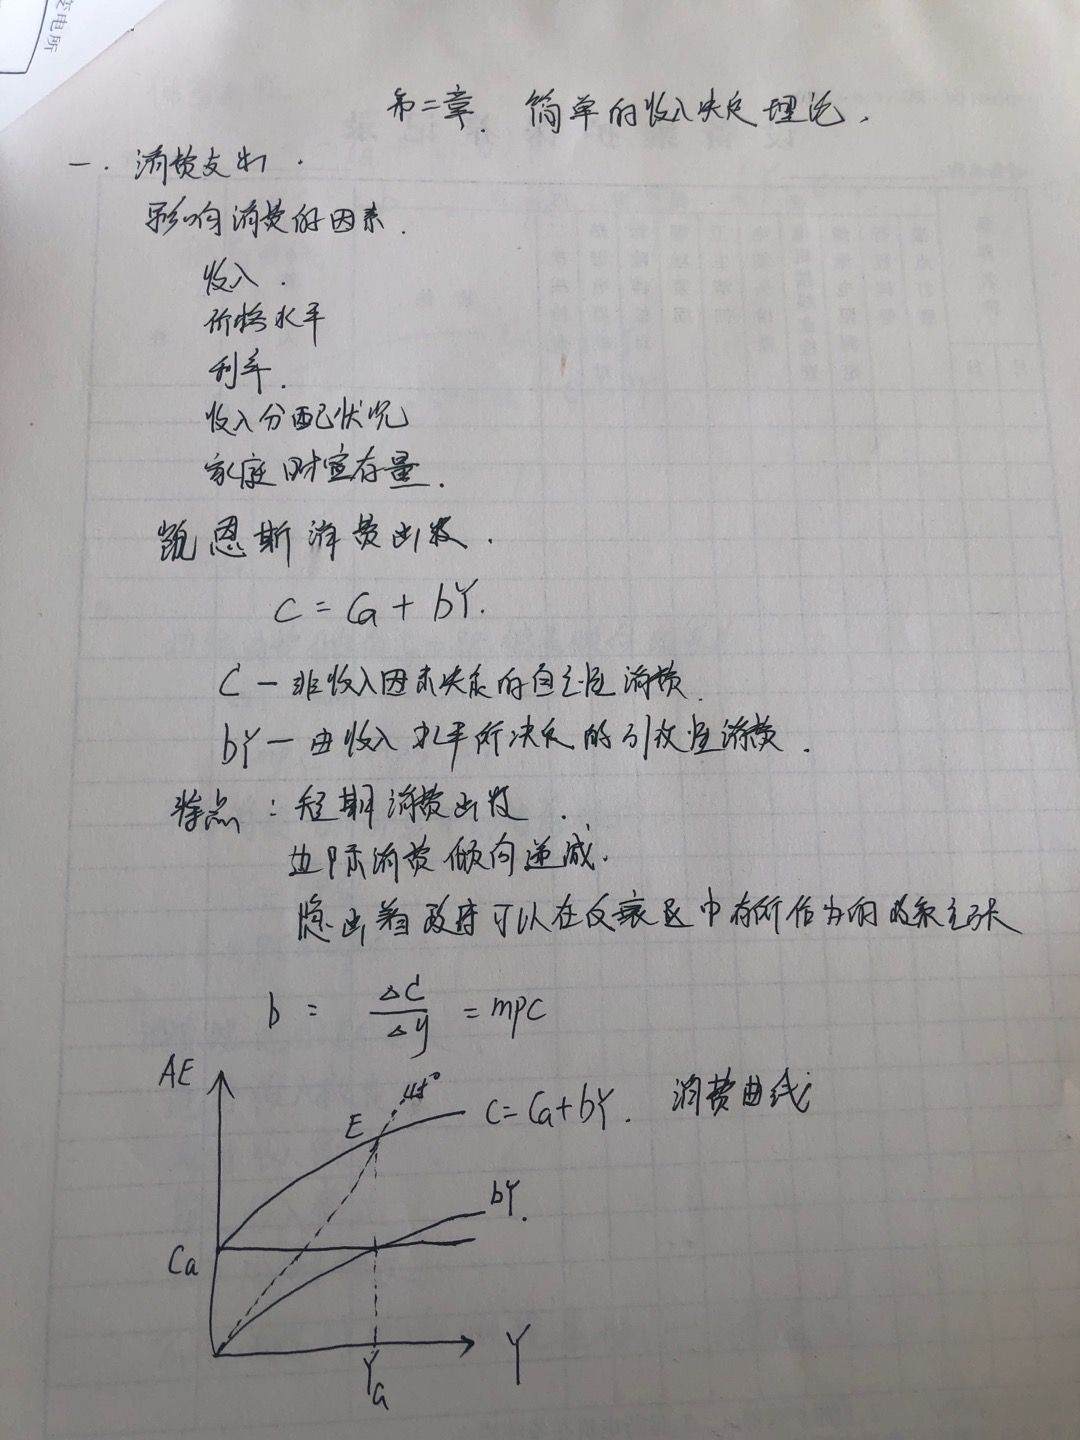 变电所
第二章. 简单的收入决定理论.
一. 消费支出.
影响消费的因素.
收入.
价格水平
利率.
收入分配状况
家庭财富存量.
凯恩斯消费函数.
C = Ca + bY.
C — 非收入因素决定的自主性消费.
bY — 由收入水平所决定的引致性消费.
特点: 短期消费函数.
边际消费倾向递减.
隐函着政府可以在反衰退中有所作为的政策主张
b = ΔC/Δy = mpc
AE
45°
E
C=Ca+bY. 消费曲线
bY.
Ca
Ya
Y